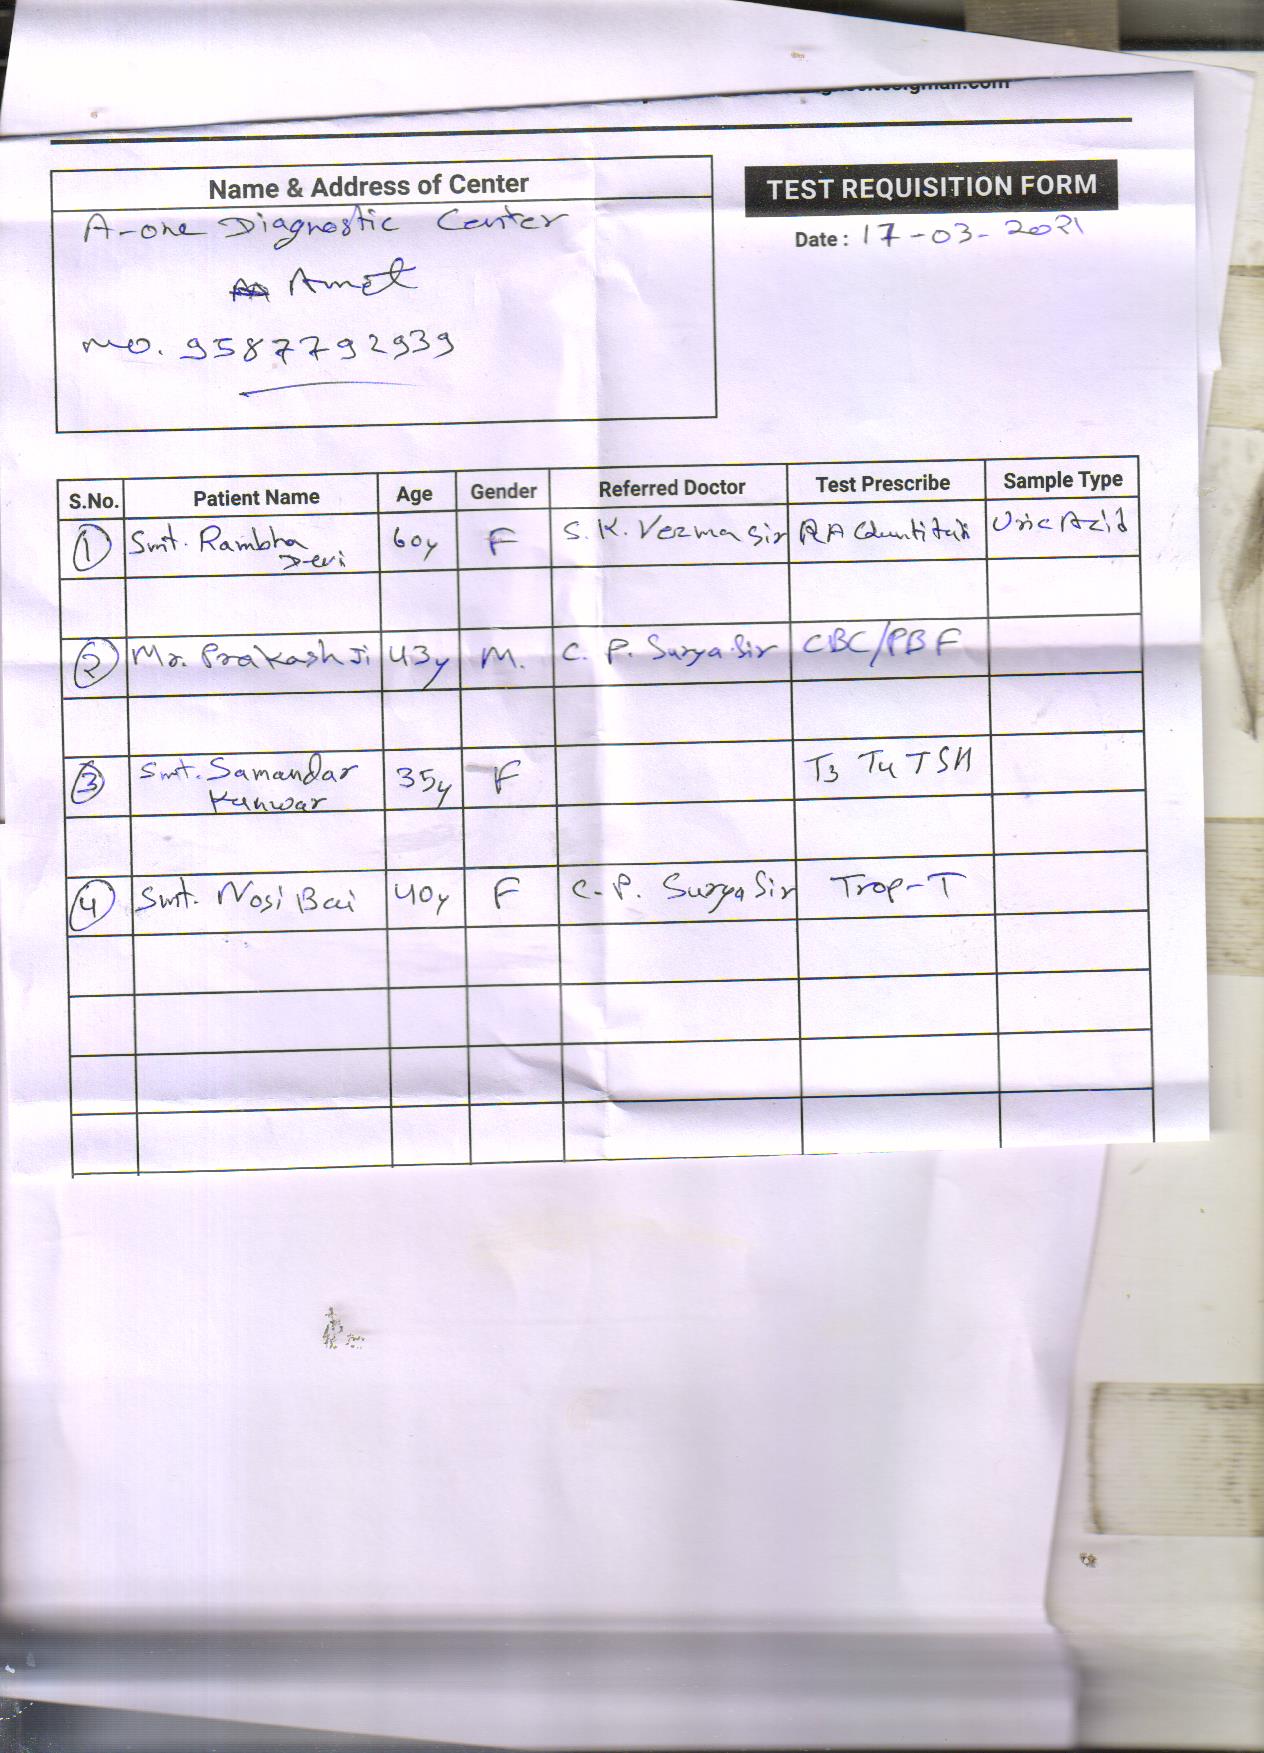 Name & Address of Center
A-one Diagnostic Center
Amet
mo. 9587792939
TEST REQUISITION FORM
Date: 17-03-2021
S.No. Patient Name Age Gender Referred Doctor Test Prescribe Sample Type
1 Smt. Rambha Devi 60y F S. K. Verma Sir RA Uric Azid
2 Mr. Prakash Ji 43y M. C. P. Surya Sir CBC/PBF
3 Smt. Samandar Kunwar 35y F T3 T4 TSH
4 Smt. Nosi Bai 40y F C. P. Surya Sir Trop-T